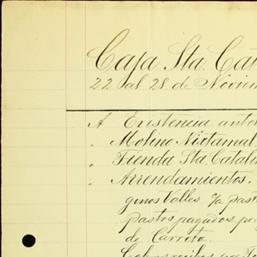 Caja Sta. Cat
22 al 28 de Noviem
A Existencia ante
" Molino Nixtamal
" Tienda Sta. Catali
" Arrendamientos.
ginos Valles s/a past
pastos pagados po
de Carreta.